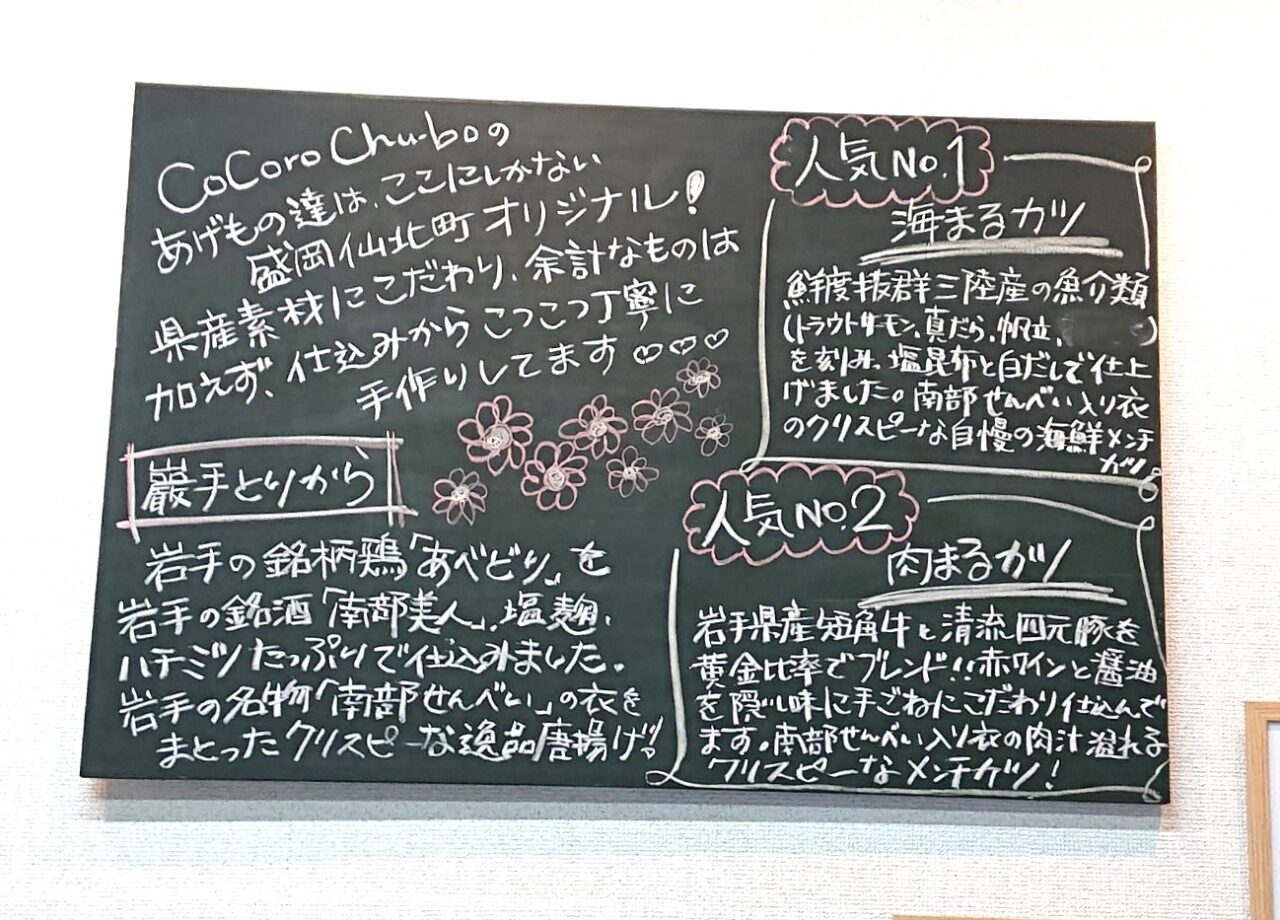 CoCoro Chu-boの
あげもの達は、ここにしかない
盛岡仙北町オリジナル!
県産素材にこだわり、余計なものは
加えず、仕込みからこつこつ丁寧に
手作りしてます♡♡♡
巖手とりから
岩手の銘柄鶏「あべどり」を
岩手の銘酒「南部美人」、塩麹、
ハチミツたっぷりで仕込みました。
岩手の名物「南部せんべい」の衣を
まとったクリスピーな逸品唐揚げ!!
人気No.1
海まるカツ
鮮度抜群三陸産の魚介類
(トラウトサーモン、真だら、帆立、)
を刻み、塩昆布と白だしで仕上
げました。南部せんべい入り衣
のクリスピーな自慢の海鮮メンチ
カツ
人気No.2
肉まるカツ
岩手県産短角牛と清流四元豚を
黄金比率でブレンド!!赤ワインと醤油
を隠し味に手ごねにこだわり仕込んで
ます。南部せんべい入り衣の肉汁溢れる
クリスピーなメンチカツ!